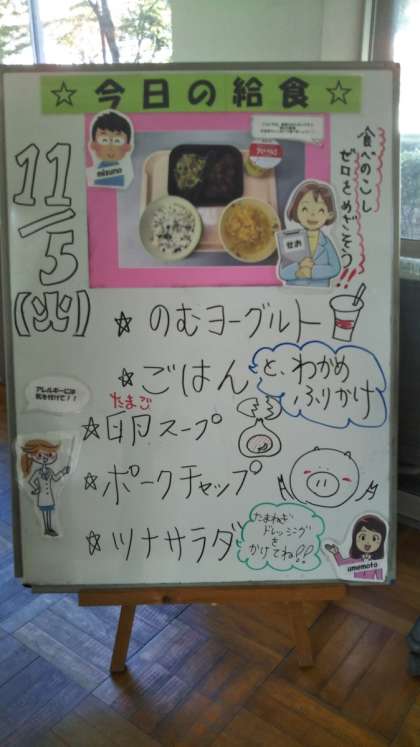 ☆今日の給食☆
食べのこし
ゼロをめざそう!!
11/5
(火)
mizuno
せお
☆のむヨーグルト
☆ごはんと、わかめ
ふりかけ
たまご
☆卵スープ
アレルギーには
気を付けて！！
☆ポークチャップ
☆ツナサラダ
たまねぎ
ドレッシング
を
かけてね!!
umemoto